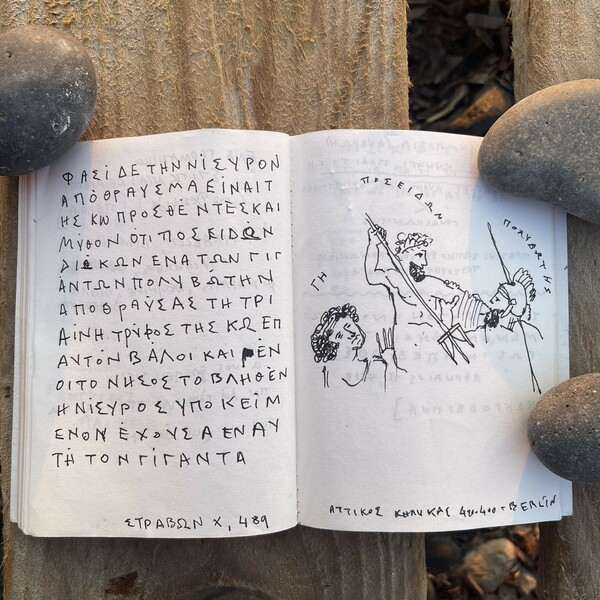 ΦΑΣΙ ΔΕ ΤΗΝ ΝΙΣΥΡΟΝ
ΑΠΌΘΡΑΥΣΜΑ ΕΙΝΑΙ Τ
ΗΣ ΚΩ ΠΡΟΣΘΈΝΤΕΣ ΚΑΙ
ΜΥΘΟΝ ΟΤΙ ΠΟΣΕΙΔΩΝ
ΔΙΩΚΩΝ ΕΝΑ ΤΩΝ ΓΙΓ
ΑΝΤΩΝ ΠΟΛΥΒΩΤΗΝ
ΑΠΟΘΡΑΥΣΑΣ ΤΗ ΤΡΙ
ΑΙΝΗ ΤΡΥΦΟΣ ΤΗΣ ΚΩ ΕΠ
ΑΥΤΟΝ ΒΑΛΟΙ ΚΑΙ ΓΕΝ
ΟΙΤΟ ΝΗΣΟΣ ΤΟ ΒΛΗΘΕΝ
Η ΝΙΣΥΡΟΣ ΥΠΟΚΕΙΜ
ΕΝΟΝ ΈΧΟΥΣΑ ΕΝ ΑΥ
ΤΗ ΤΟΝ ΓΙΓΑΝΤΑ
ΣΤΡΑΒΩΝ Χ, 489
ΠΟΣΕΙΔΩΝ
ΠΟΛΥΒΩΤΗΣ
ΓΗ
ΑΤΤΙΚΟΣ ΚΥΛΥΚΑΣ 420-400 - BERLIN